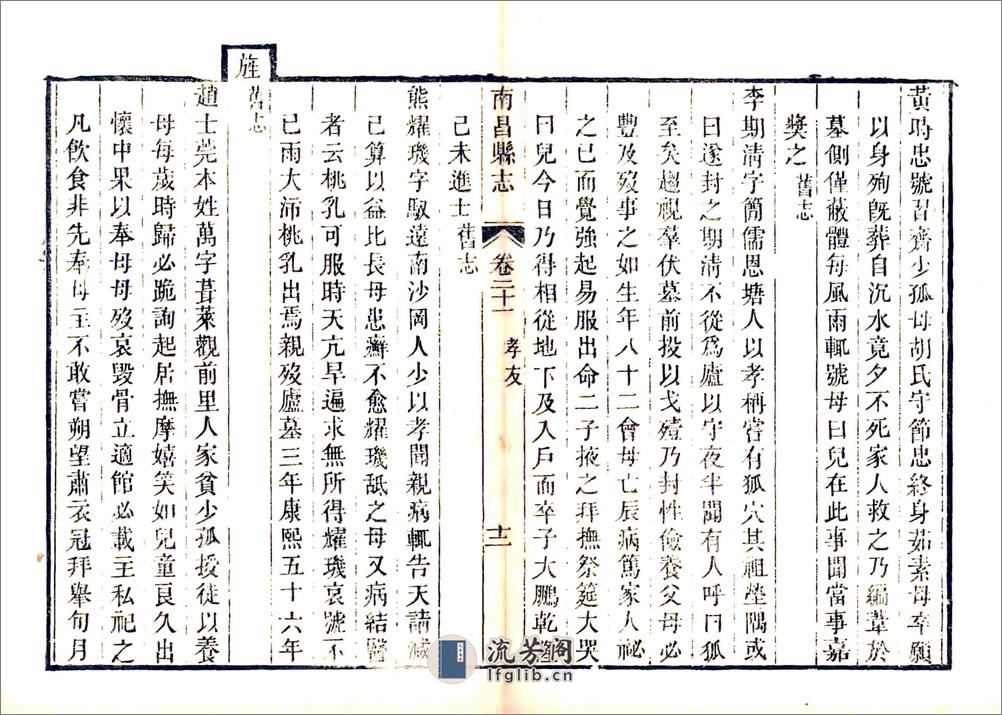 黃鳴忠號習齋少孤母胡氏守節忠終身茹素母卒願
以身殉既葬自沉水竟夕不死家人救之乃編葦於
墓側僅蔽體每風雨輒號母曰兒在此事聞當事嘉
獎之 舊志
李期清字簡儒恩塘人以孝稱嘗有狐穴其祖塋隅或
曰遂封之期清不從爲廬以守夜半聞有人呼曰狐
至矣趨視羣伏墓前投以戈殪乃封性儉養父母必
豐及歿事之如生年八十二會母亡辰病篤家人祕
之已而覺強起易服出命二子掖之拜撫祭筵大哭
曰兒今日乃得相從地下及入戶而卒子大鵬乾隆
己未進士 舊志
南昌縣志 卷二十一 孝友 十二
熊耀璣字馭遠南沙岡人少以孝聞親病輒告天請減
己算以益比長母患癬不愈耀璣舐之母又病結醫
者云桃乳可服時天亢旱遍求無所得耀璣哀號不
已雨大沛桃乳出焉親歿廬墓三年康熙五十六年
旌 舊志
趙士莞本姓萬字葺萊觀前里人家貧少孤授徒以養
母每歲時歸必跪詢起居撫摩嬉笑如兒童良久出
懷中果以奉母母歿哀毀骨立適館必載主私祀之
凡飲食非先奉母主不敢嘗朔望肅衣冠拜舉旬月
流芳閣
lfglib.cn